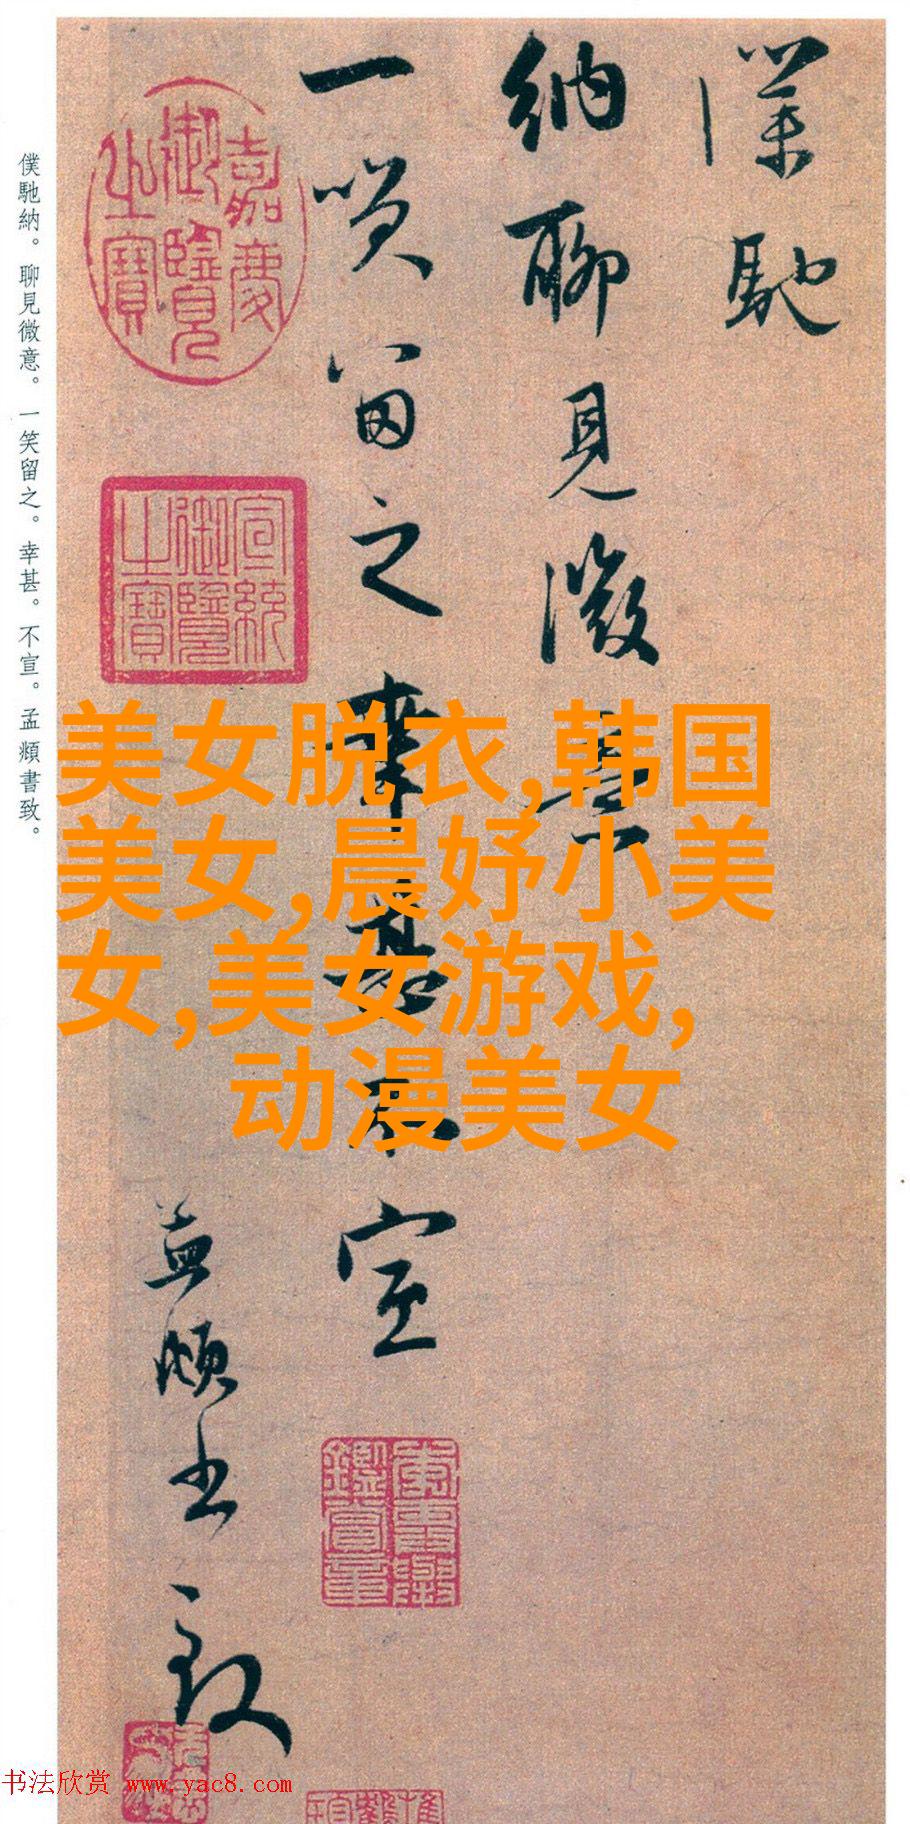 僕馳
納聊見微意
一笑留之幸甚不宣
孟頫書致
嘉慶
御覽
之寶
宣統
御覽
之寶
僕馳納。聊見微意。一笑留之。幸甚。不宣。孟頫書致。
美女脱衣,韩国
美女,晨妤小美
女,美女游戏,
动漫美女
书法欣赏 www.yac8.com